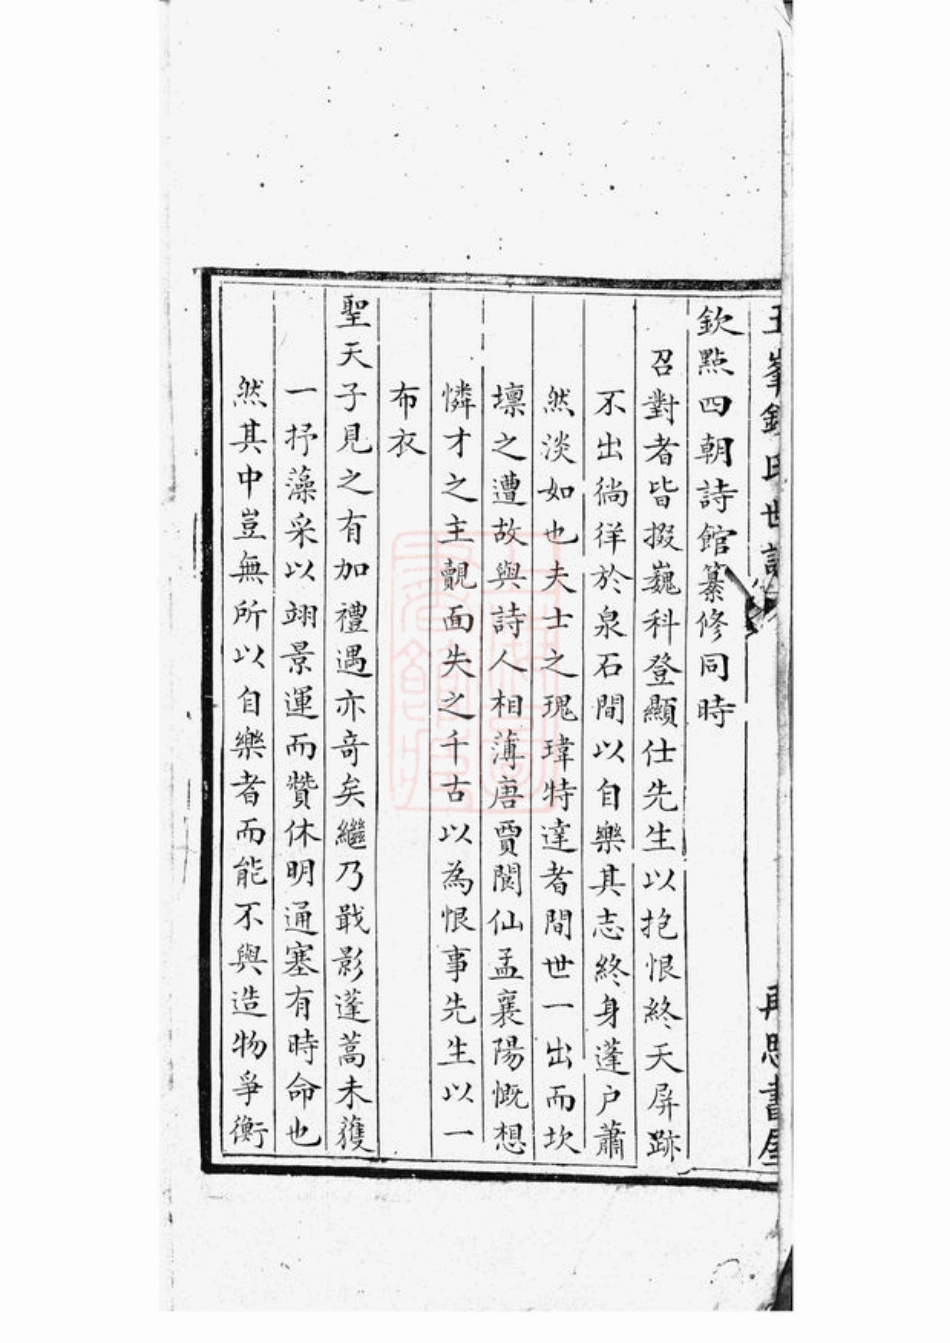 欽點四朝詩館纂修同時
召對者皆掇巍科登顯仕先生以抱恨終天屏跡
不出徜徉於泉石間以自樂其志終身蓬户蕭
然淡如也夫士之瑰瑋特達者間世一出而坎
壈之遭故與詩人相薄唐賈閬仙孟襄陽慨想
憐才之主覿面失之千古以為恨事先生以一
布衣
聖天子見之有加禮遇亦竒矣繼乃戢影蓬蒿未獲
一抒藻采以翊景運而贊休明通塞有時命也
然其中豈無所以自樂者而能不與造物爭衡